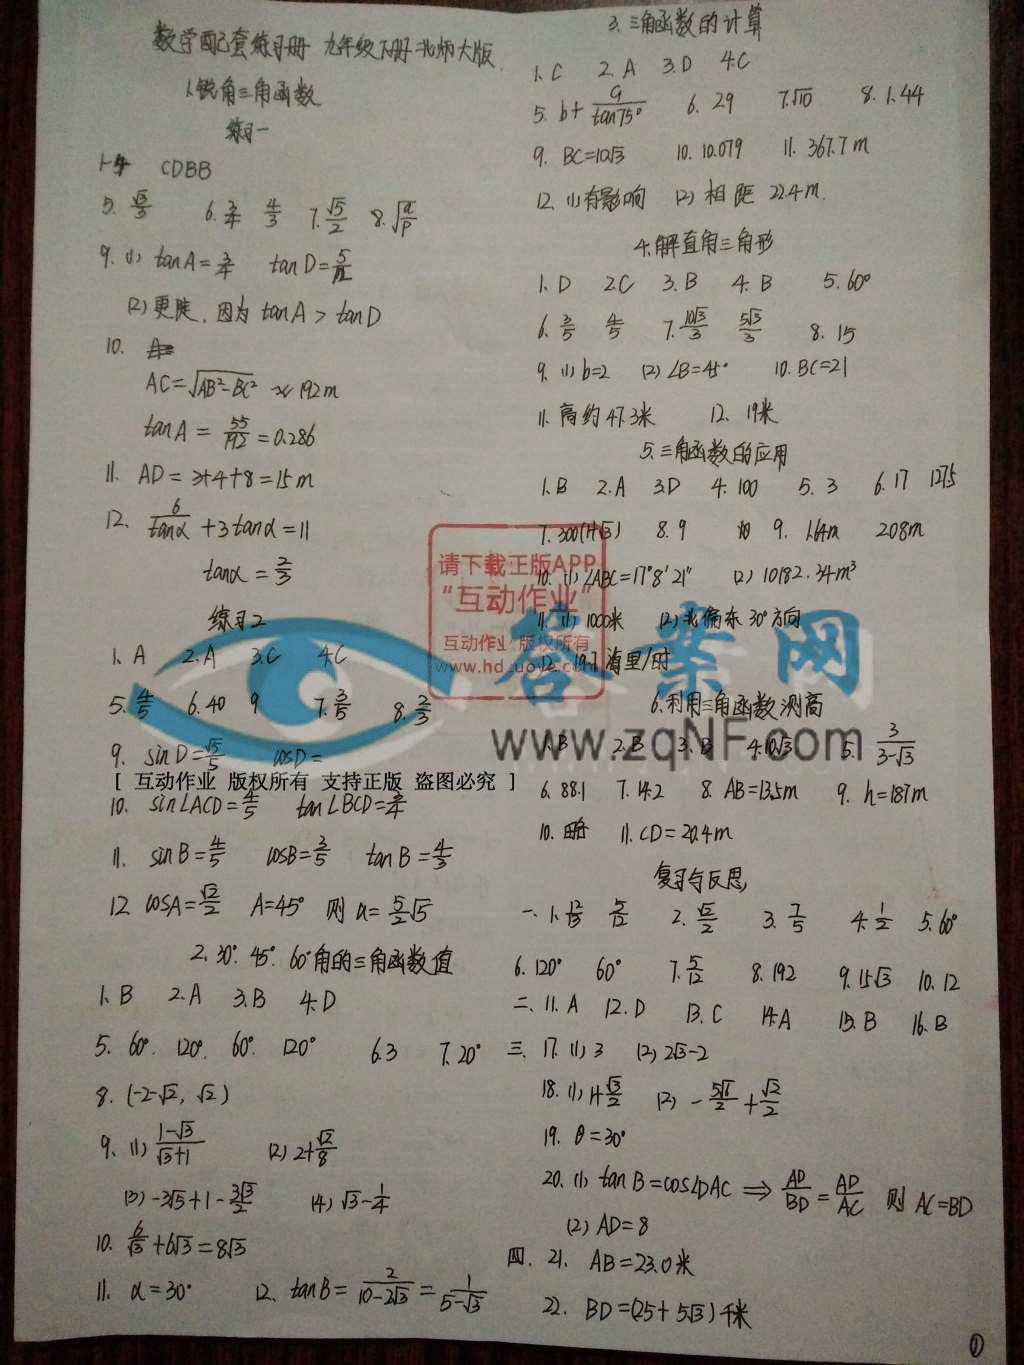 数学配套练习册 九年级下册 北师大版
1.锐角三角函数
练习一
1-4 CDBB
6. 3/4 4/3 7. √5/2
9. (1) tanA=3/4 tanD=5/12
(2) 更陡, 因为 tanA > tanD
10.
AC=√(AB²-BC²) ≈192m
tanA = 55/192 =0.286
11. AD = 3+4+8=15m
12. 6/tanα +3tanα=11
tanα = 2/3
练习2
1. A 2. A 3. C 4. C
5. 4/5 6. 40 9 7. 3/5 8. 2/3
9. sinD=√5/5 cosD=
[ 互动作业 版权所有 支持正版 盗图必究 ]
10. sin∠ACD=4/5 tan∠BCD=3/4
11. sinB=4/5 cosB=3/5 tanB=4/3
12. cosA=√2/2 A=45° 则 a=5/2√5
2. 30°. 45°. 60°角的三角函数值
1. B 2. A 3. B 4. D
5. 60°. 120°. 60° 120° 6. 3 7. 20°
8. (-2-√2, √2)
9. (1) (1-√3)/(√3+1) (2) 2+√2/8
(3) -3√5+1-3√3/2 (4) √3-1/4
10. 6/√3+6√3=8√3
11. α=30° 12. tanB= 2/(10-2√3) = 1/(5-√3)
3. 三角函数的计算
1. C 2. A 3. D 4. C
5. b+ a/tan75° 6. 29 7. √10 8. 1.44
9. BC=10√3 10. 10.079 11. 367.7m
12. (1) 有影响 (2) 相距 22.4m.
4. 解直角三角形
1. D 2. C 3. B 4. B 5. 60°
6. 3/5 4/5 7. 10√3/3 5√3/3 8. 15
9. (1) b=2 (2) ∠B=45° 10. BC=21
11. 高约47.3米 12. 19米
5. 三角函数的应用
1. B 2. A 3. D 4. 100 5. 3 6. 17 127.5
7. 300(1+√3) 8. 9 9. 1.64m 2.08m
10. (1) ∠ABC=17°8′21″ (2) 10182.34m³
11. (1) 1000米 (2) 北偏东30°方向
12. 19.7海里/时
请下载正版APP
“互动作业”
互动作业 版权所有
答案网
www.zqNF.com
6. 利用三角函数测高
1. B 2. B 3. B 4. 10√3 5. 3/(3-√3)
6. 88.1 7. 14.2 8. AB=13.5m 9. h=18.7m
10. 略 11. CD=20.4m
复习与反思
一. 1. 12/13 5/12 2. √2/2 3. 7/5 4. 1/2 5. 60°
6. 120° 60° 7. 5/12 8. 192 9. 15√3 10. 12
二. 11. A 12. D 13. C 14. A 15. B 16. B
三. 17. (1) 3 (2) 2√3-2
18. (1) 1+√3/2 (2) -5√6/2+√2/2
19. θ=30°
20. (1) tanB=cos∠DAC ⇒ AD/BD = AD/AC 则 AC=BD
(2) AD=8
四. 21. AB=23.0米
22. BD=(25+5√3)千米
①